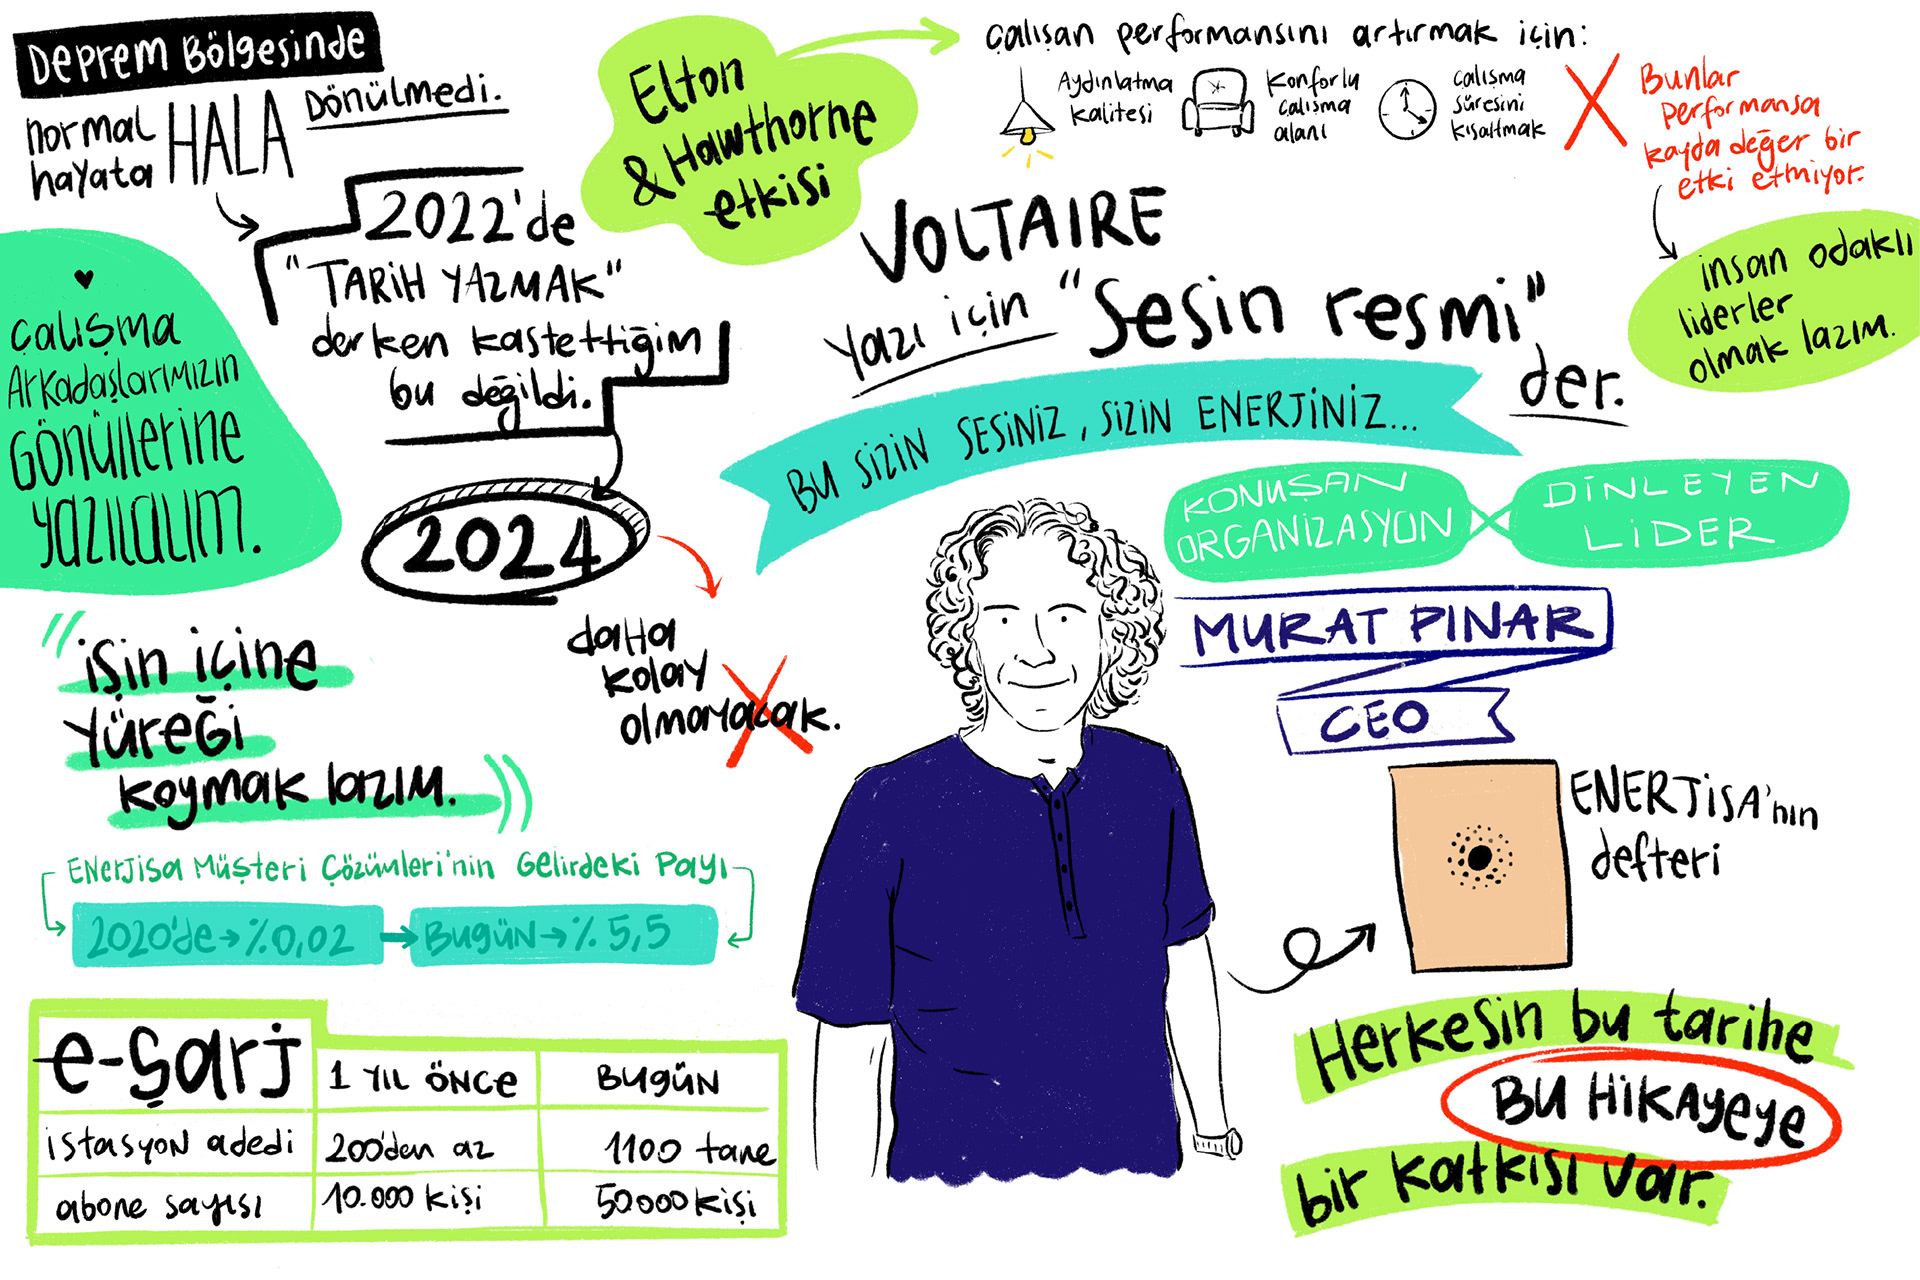 Deprem Bölgesinde
normal
hayata
HALA
DÖNÜLMEDİ.
2022'de
"TARİH YAZMAK"
derken kastettiğim
bu değildi.
2024
daha
kolay
olmayacak.
♥
çalışma
Arkadaşlarımızın
Gönüllerine
yazılalım.
"işin içine
yüreği
koymak lazım."
Enerjisa Müşteri Çözümleri'nin Gelirdeki Payı
2020'de→%0,02 → Bugün→%5,5
e-şarj
1 YIL ÖNCE
BUGÜN
istasyon adedi
200'den az
1100 tane
abone sayısı
10.000 kişi
50000 kişi
Elton
& Hawthorne
etkisi
çalışan performansını artırmak için:
Aydınlatma
kalitesi
Konforlu
çalışma
alanı
çalışma
süresini
kısaltmak
Bunlar
performansa
kayda değer bir
etki etmiyor.
insan odaklı
liderler
olmak lazım.
VOLTAIRE
yazı için "Sesin resmi"
der.
BU SİZİN SESİNİZ, SİZİN ENERJİNİZ...
KONUŞAN
ORGANİZASYON
DİNLEYEN
LİDER
MURAT PINAR
CEO
ENERJİSA'nın
defteri
Herkesin bu tarihe
BU HİKAYEYE
bir katkısı var.